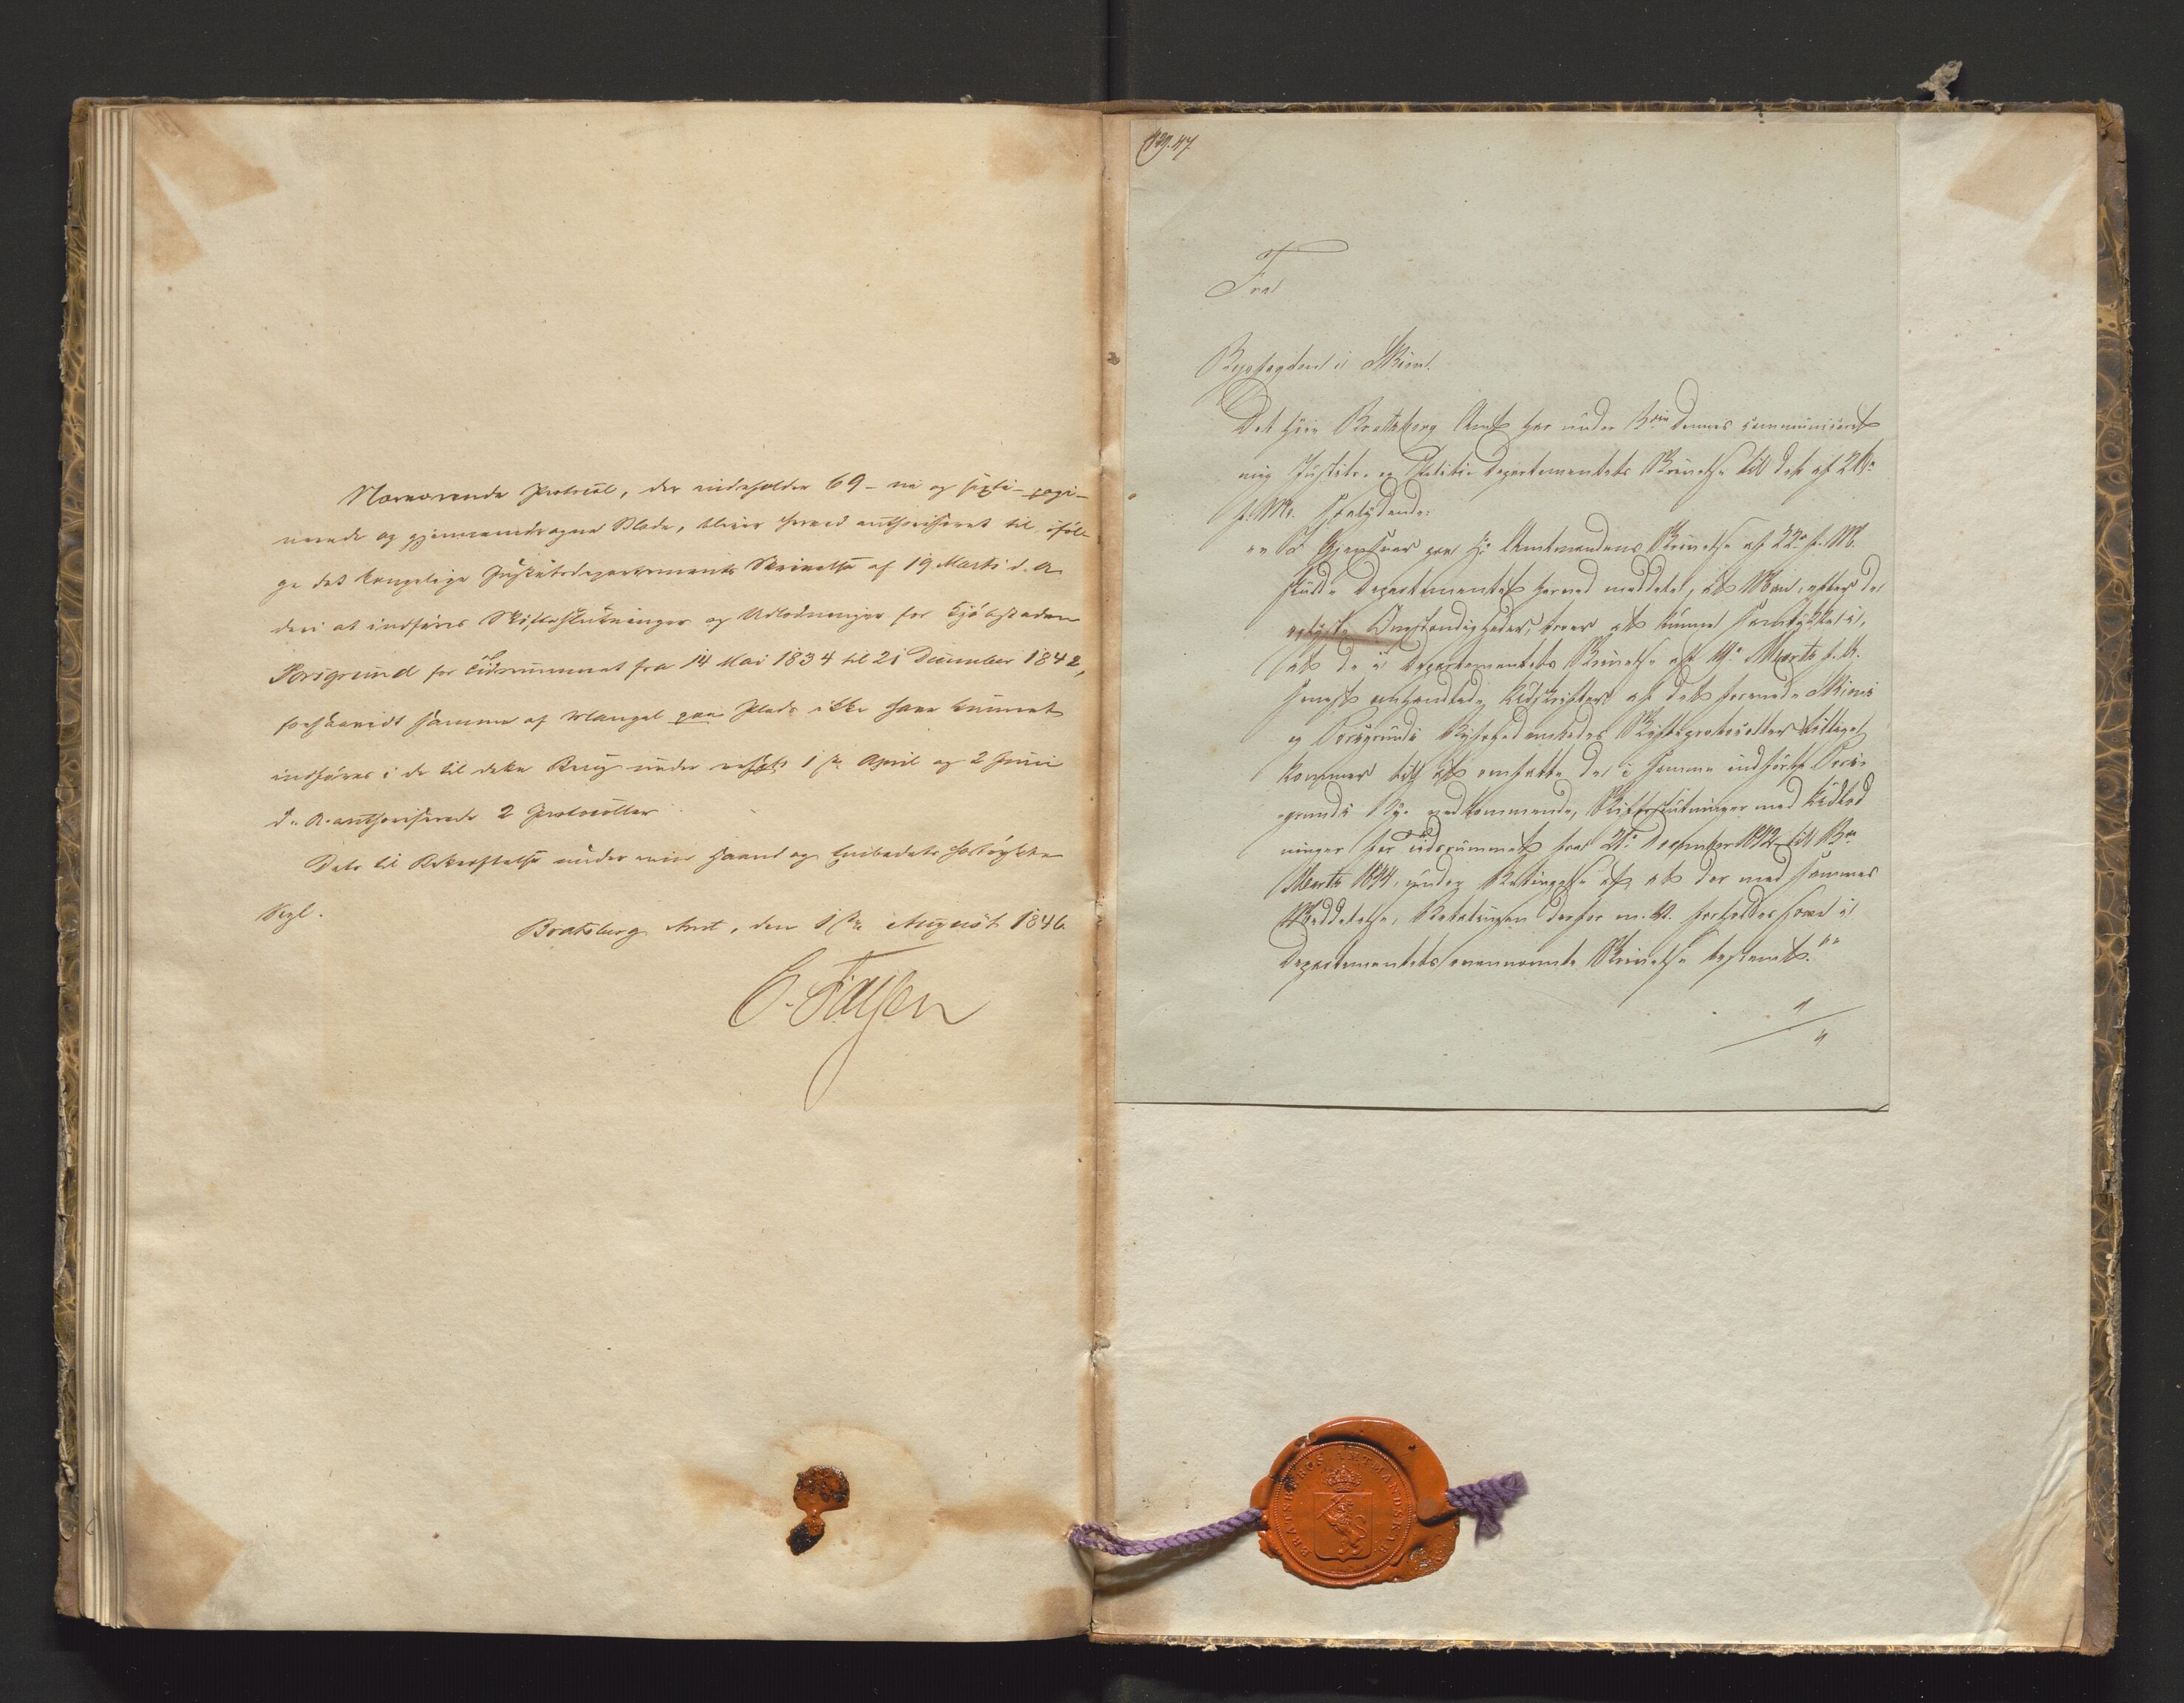 Nærværende Protocol, der indeholder 69 – ni og sexti – pagi-
nerede og gjennemdragne Blade, bliver herved authoriseret til iføl-
ge det kongelige Justitsdepartements Skrivelse af 19 Marts d. A.
deri at indføres Skifteslutninger og Udlodninger for Kjøbstaden
Porsgrund for Tidsrummet fra 14 Mai 1834 til 21 December 1842,
forsaavidt samme af Mangel paa Plads ikke have kunnet
indføres i de til dette Brug under 1ste April og 2 Juni
d. A. authoriserede 2 Protocoller
Dets til Bekræftelse under min Haand og Embedets
Segl.
Bratsberg Amt, den 1ste August 1846.
Fra
Byefogden i Skien.
Det høie Bratsberg Amt har under 3die dennes communiceret
mig Justits- og Politie Departementets Skrivelse til det af 26.
f. M. saalydende:
"" I Gjensvar paa Hr Amtmandens Skrivelse af 22. f. M.
skulde Departementet herved meddele, at Man, efter de
oplyste Omstændigheder, troer at kunne samtykke i,
at de i Departementets Skrivelse af 19. Marts f. A.
omhandlede Udskrifter af det forenede Skiens
og Porsgrunds Byfogedembedes Skifteprotocoller tillige
kommer til at omfatte de i samme indførte Pors-
grunds By vedkommende, Skifteslutninger med Udlod
ninger for Tidsrummet fra 21. December 1842 til 13.
Marts 1844, under Betingelse af at der med Hammer
Meddelelse, Betalingen derfor m. V. forholdes som i
Departementets ovennævnte Skrivelse bestemt.""
BRATSBERGS AMTMANDSKAB